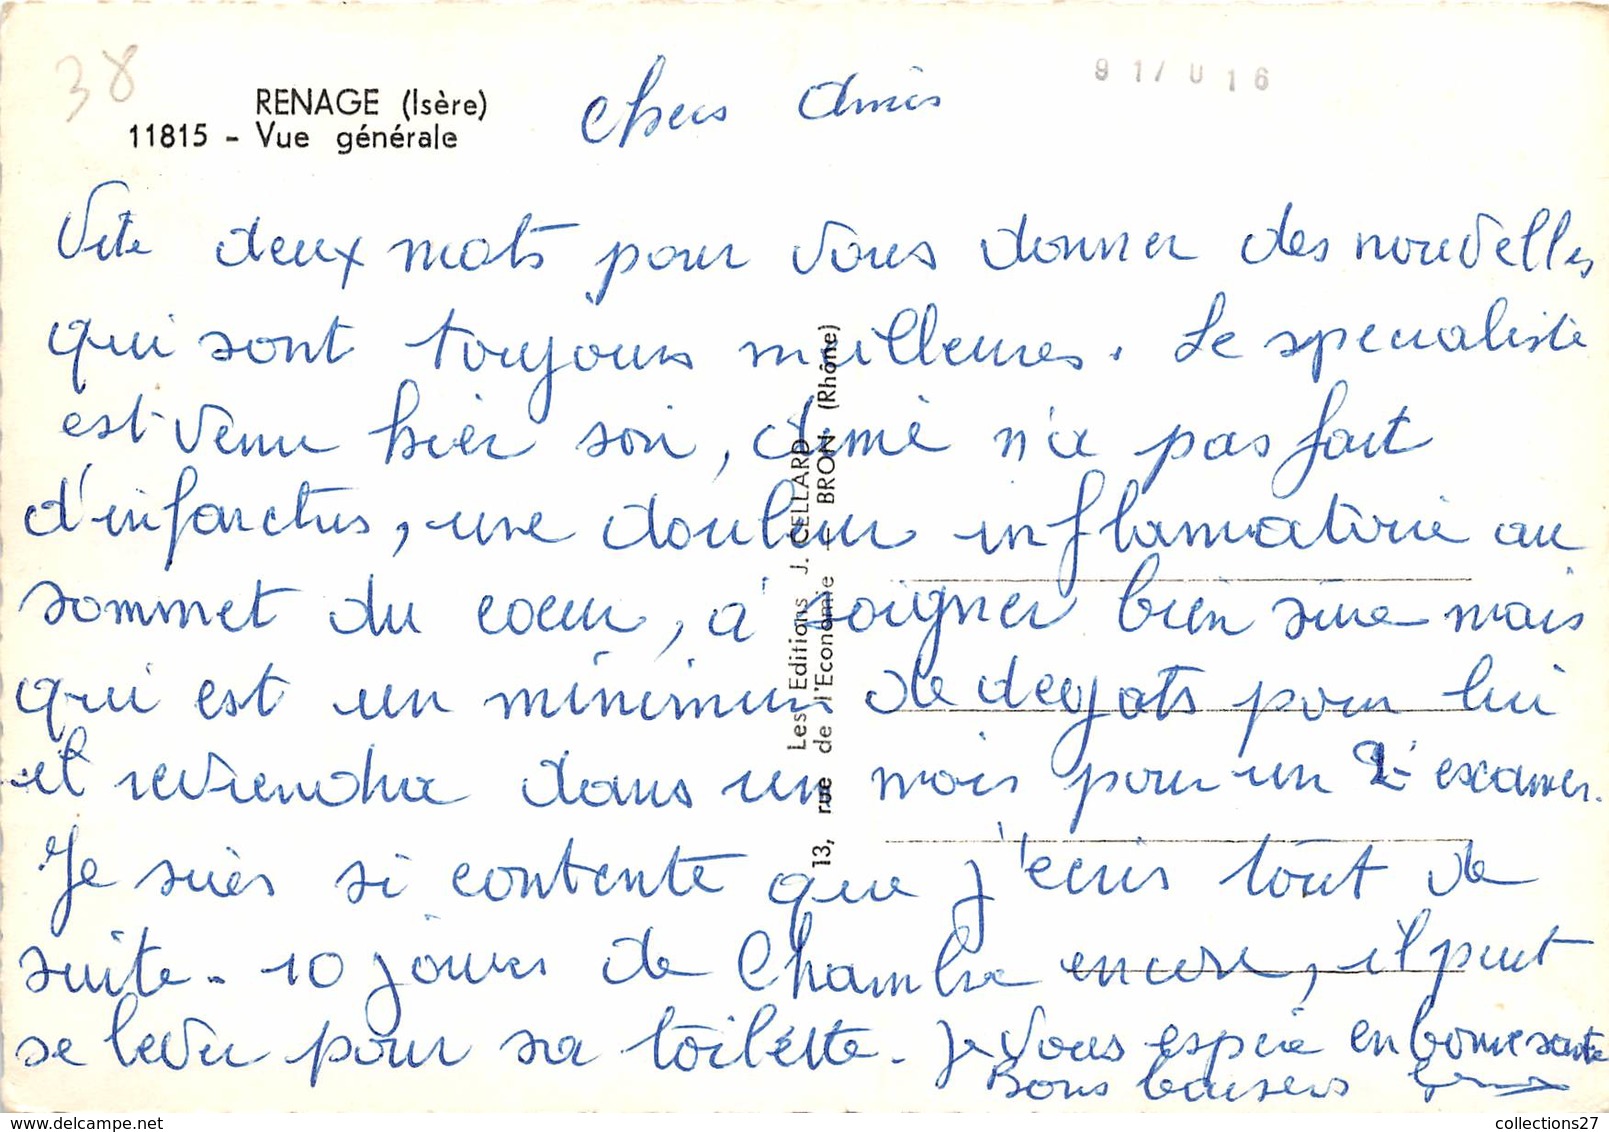 38
RENAGE (Isère)
11815 - Vue générale
91/016
Chers Amis
Vite deux mots pour vous donner des nouvelles
qui sont toujours meilleures. Le specialiste
est venu hier soir, Aimé n'a pas fait
d'infarctus, une douleur inflammatoire au
sommet du coeur, à soigner bien sûre mais
qui est un minimum de degats pour lui
il reviendra dans un mois pour un 2e examen.
Je suis si contente que j'écris tout de
suite - 10 jours de Chambre encore, il peut
se lever pour sa toilette. Je vous espère en bonne santé
Bons baisers
Les Editions J. CELLARD
13, rue de l'Economie - BRON (Rhône)
collections27